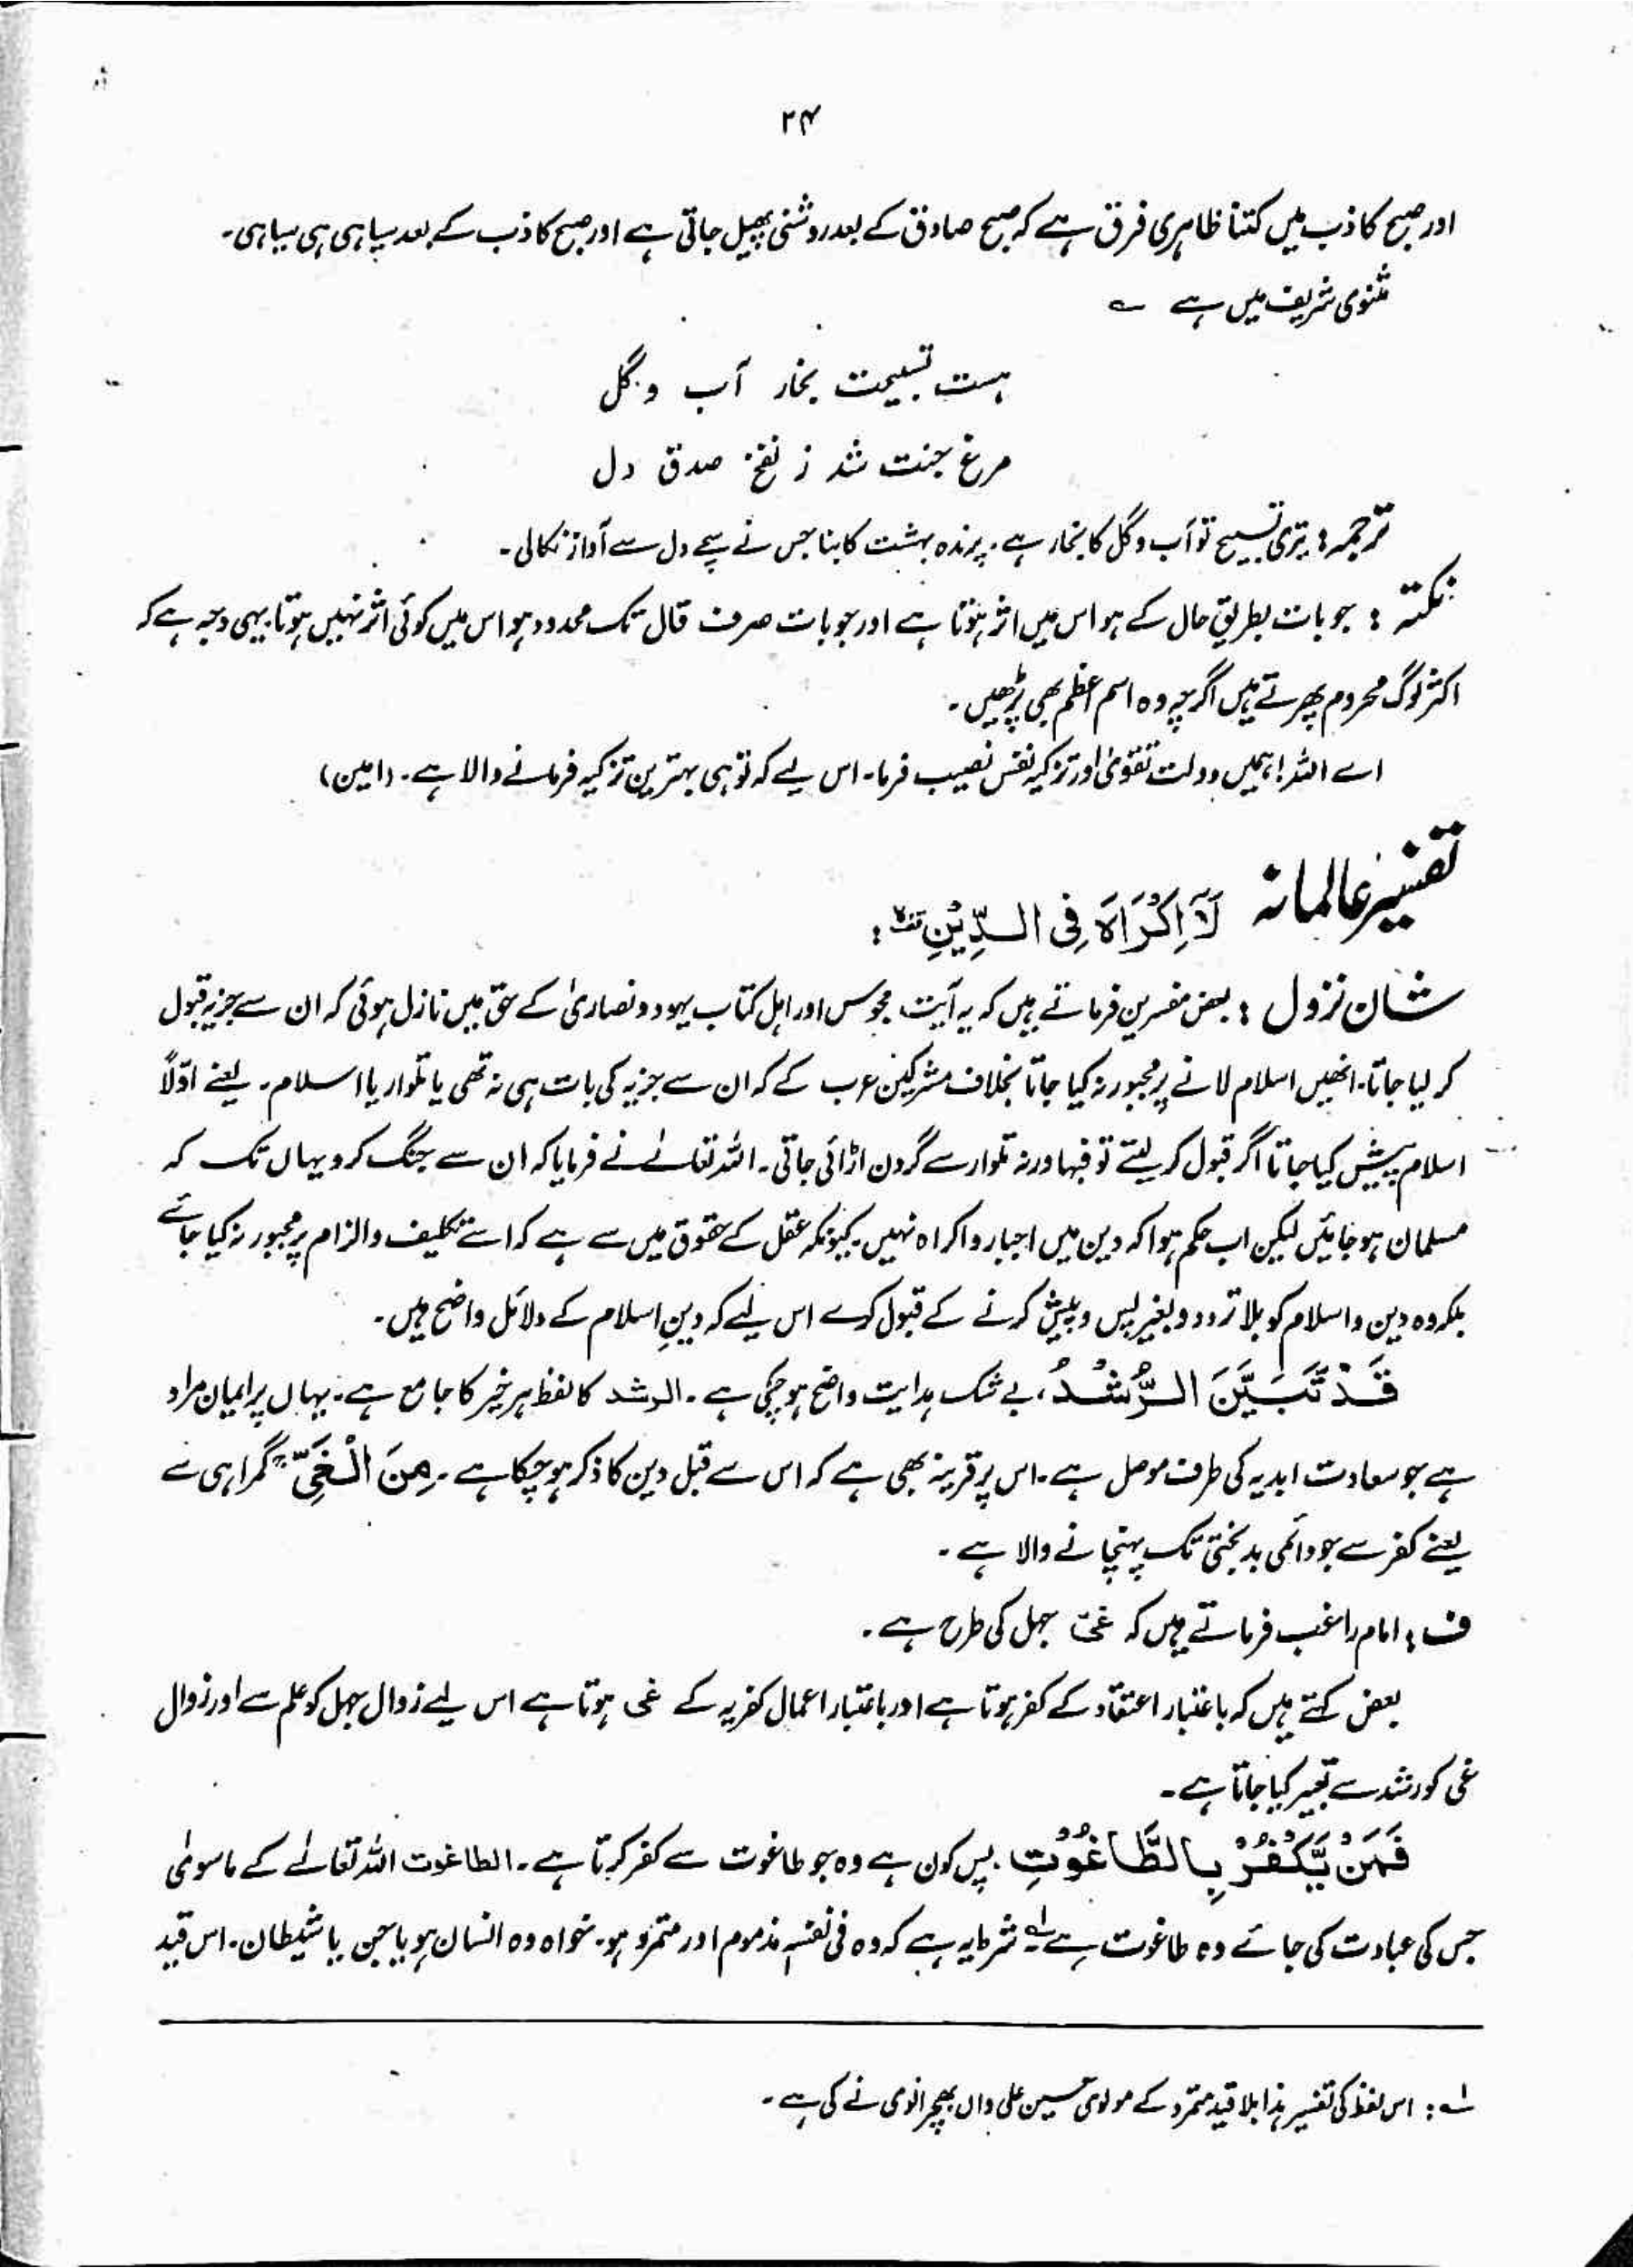 ۲۴
اور صبح کاذب میں کتنا ظاہری فرق ہے کہ صبح صادق کے بعد روشنی پھیل جاتی ہے اور صبح کاذب کے بعد سیاہی ہی سیاہی۔
مثنوی شریف میں ہے ؎
ہست تسبیحت بخار آب و گل
مرغ جنت شد ز نفخ صدق دل
ترجمہ : تیری تسبیح تو آب و گل کا بخار ہے۔ پرندہ بہشت کا بنا جس نے سچے دل سے آواز نکالی۔
نکتہ : جو بات بطریق حال کے ہو اس میں اثر ہوتا ہے اور جو بات صرف قال تک محدود ہو اس میں کوئی اثر نہیں ہوتا۔ یہی وجہ ہے کہ
اکثر لوگ محروم پھرتے ہیں اگرچہ وہ اسم اعظم بھی پڑھیں۔
اے اللہ! ہمیں دولت تقویٰ اور تزکیہ نفس نصیب فرما۔ اس لیے کہ تو ہی بہترین تزکیہ فرمانے والا ہے۔ (امین)
تفسیر عالمانہ لَآ اِكْرَاهَ فِى الدِّيْنِ :
شان نزول : بعض مفسرین فرماتے ہیں کہ یہ آیت مجوس اور اہل کتاب یہود و نصاریٰ کے حق میں نازل ہوئی کہ ان سے جزیہ قبول
کر لیا جاتا۔ انھیں اسلام لانے پر مجبور نہ کیا جاتا بخلاف مشرکین عرب کے کہ ان سے جزیہ کی بات ہی نہ تھی یا تلوار یا اسلام۔ یعنے اوّلاً
اسلام پیش کیا جاتا اگر قبول کر لیتے تو فبہا ورنہ تلوار سے گردن اڑائی جاتی۔ اللہ تعالےٰ نے فرمایا کہ ان سے جنگ کرو یہاں تک کہ
مسلمان ہو جائیں لیکن اب حکم ہوا کہ دین میں اجبار و اکراہ نہیں۔ کیونکہ عقل کے حقوق میں سے ہے کہ اسے تکلیف و الزام پر مجبور نہ کیا جائے
بلکہ وہ دین و اسلام کو بلا تردد و بغیر پس و پیش کرنے کے قبول کرے اس لیے کہ دینِ اسلام کے دلائل واضح ہیں۔
قَدْ تَّبَيَّنَ الرُّشْدُ، بے شک ہدایت واضح ہو چکی ہے۔ الرشد کا لفظ ہر خیر کا جامع ہے۔ یہاں پر ایمان مراد
ہے جو سعادت ابدیہ کی طرف موصل ہے۔ اس پر قرینہ بھی ہے کہ اس سے قبل دین کا ذکر ہو چکا ہے۔ مِنَ الْغَىِّ گمراہی سے
یعنے کفر سے جو دائمی بدبختی تک پہنچانے والا ہے۔
ف : امام راغب فرماتے ہیں کہ غی جہل کی طرح ہے۔
بعض کہتے ہیں کہ باعتبار اعتقاد کے کفر ہوتا ہے اور باعتبار اعمال کفریہ کے غی ہوتا ہے اس لیے زوال جہل کو علم سے اور زوال
غی کو رشد سے تعبیر کیا جاتا ہے۔
فَمَنْ يَّكْفُرْ بِالطَّاغُوْتِ پس کون ہے وہ جو طاغوت سے کفر کرتا ہے۔ الطاغوت اللہ تعالےٰ کے ماسویٰ
جس کی عبادت کی جائے وہ طاغوت ہے لہ شرط یہ ہے کہ وہ فی نفسہٖ مذموم اور متمرد ہو۔ خواہ وہ انسان ہو یا جن یا شیطان۔ اس قید
لہ : اس لفظ کی تفسیر ہذا بلا قید متمرد کے مولوی حسین علی واں بھچرانوی نے کی ہے۔